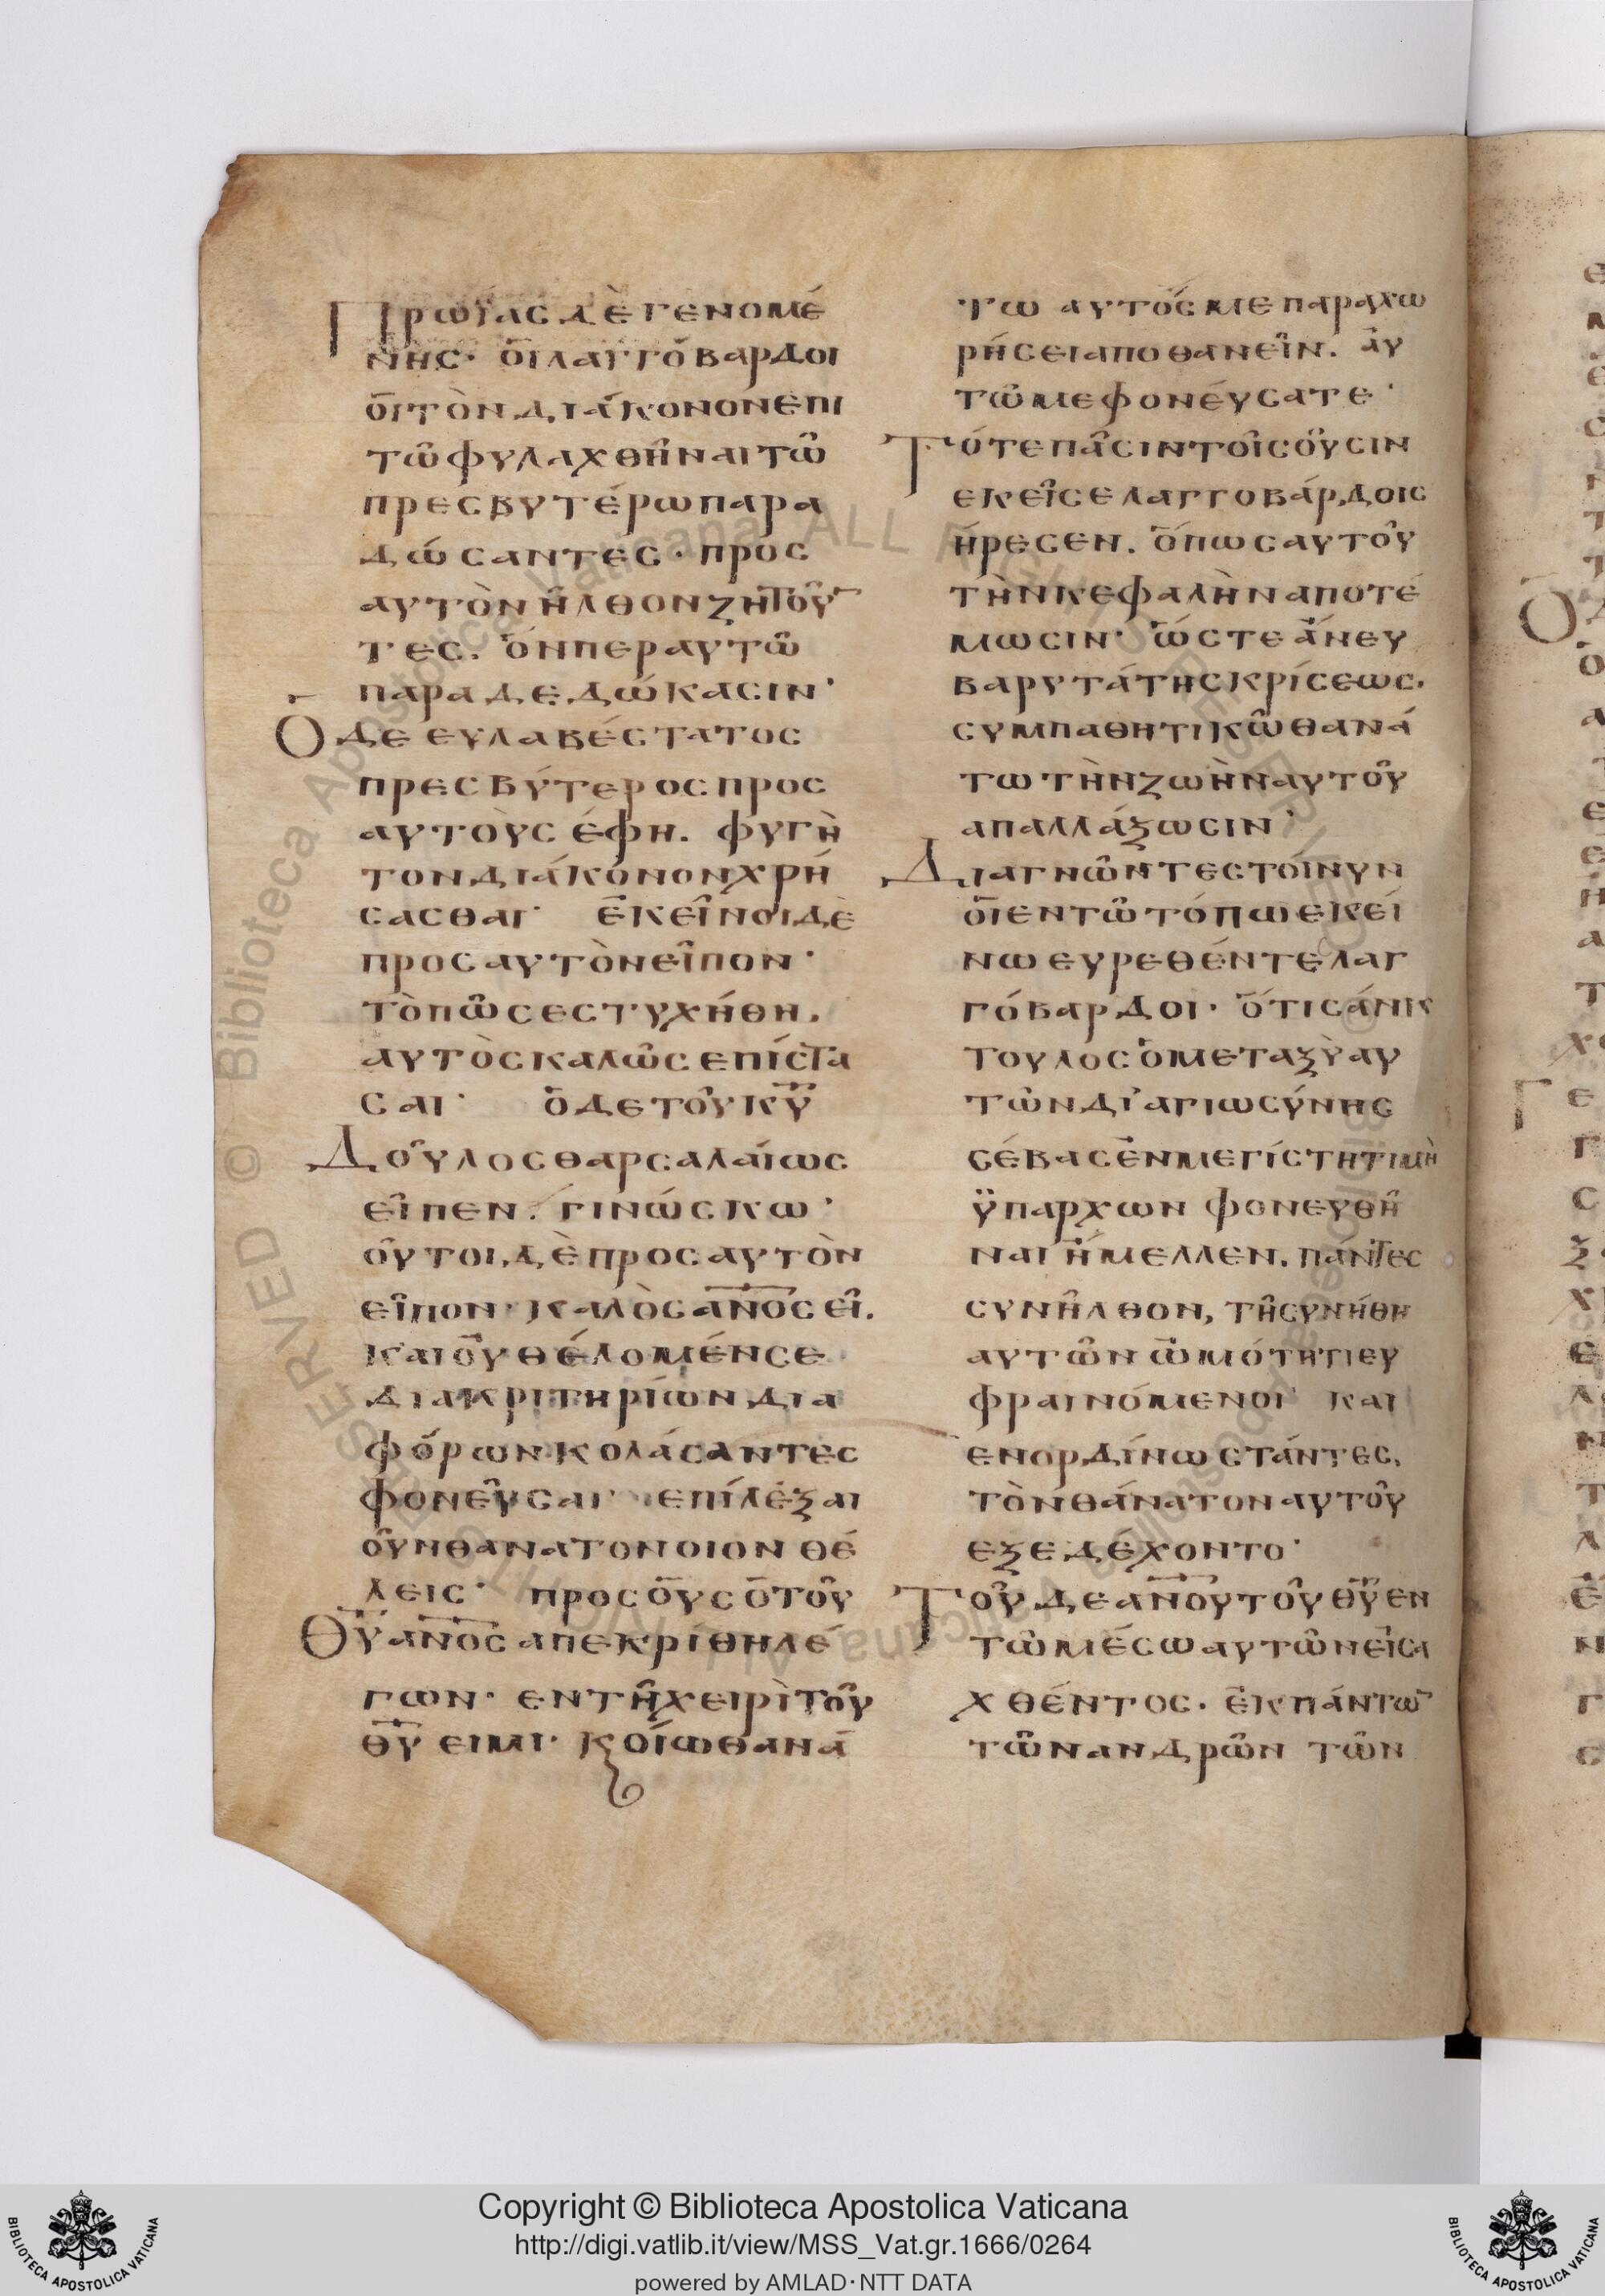 Πρωΐας δὲ γενομέ
νης· ὁι λαγγόβαρδοι
ὁι τὸν διάκονον ἐπι
τῶ φυλαχθῆναι τῶ
πρεσβυτέρω παρα
δώσαντες· προς
αυτὸν ῆλθον ζητοῦ
τες. ὅνπερ αυτῶ
παραδεδώκασιν·
Ὁ δε ευλαβέστατος
πρεσβύτερος προς
αυτοὺς έφη. φυγὴ
τον διάκονον χρή
σασθαι· ἐκεῖνοι δὲ
προς αυτὸν εῖπον·
τὸ πῶς εστυχήθη.
αυτὸς καλῶς επίστα
σαι· ὁ δε τοῦ κ̅υ̅
Δοῦλος θαρσαλαίως
εῖπεν. γινώσκω·
οῦτοι δὲ προς αυτὸν
εῖπον· καλὸς α̅ν̅ο̅ς̅ εῖ.
και οὐ θέλομέν σε
δια κριτηρίων δια
φόρων κολάσαντες
φονεῦσαι· επίλεξαι
οῦν θανατον οιον θέ
λεις· προς ὁὺς ὁ τοῦ
Θ̅υ̅ α̅ν̅ο̅ς̅ απεκρίθη λέ
γων· εν τῆ χειρὶ τοῦ
θ̅υ̅ ειμι· κ οίω θανά
τω αυτός με παραχω
ρήσει αποθανεῖν. ἀυ
τῶ με φονέυσατε·
Τότε πᾶσιν τοῖς οῦσιν
εκεῖσε λαγγοβάρδοις
ήρεσεν. ὅπως αυτοῦ
τὴν κεφαλὴν αποτέ
μωσιν· ὥστε ἄνευ
βαρυτάτης κρίσεως.
συμπαθητικῶ θανά
τω τὴν ζωὴν αυτοῦ
απαλλάξωσιν·
Διαγνῶντες τοίνυν
ὁι εν τῶ τόπω εκεί
νω ευρεθέντε λαγ
γόβαρδοι· ὅτι σάνκ
τουλος ὁ μεταξὺ αυ
τῶν δι' αγιωσύνης
σέβας ἐν μεγίστη τιμὴ
ϋπαρχων φονευθῆ
ναι ἤμελλεν. πάντες
συνῆλθον, τῆ συνήθη
αυτῶν ὠμότητι ευ
φραινόμενοι και
εν ορδίνω στάντες.
τὸν θάνατον αυτοῦ
εξεδέχοντο·
Τοῦ δε α̅ν̅ο̅υ̅ τοῦ θ̅υ̅ εν
τῶ μέσω αυτῶν εἰσα
χθέντος· ἐκ πάντω
τῶν ανδρῶν τῶν
Copyright © Biblioteca Apostolica Vaticana
http://digi.vatlib.it/view/MSS_Vat.gr.1666/0264
powered by AMLAD·NTT DATA
BIBLIOTECA APOSTOLICA VATICANA
BIBLIOTECA APOSTOLICA VATICANA